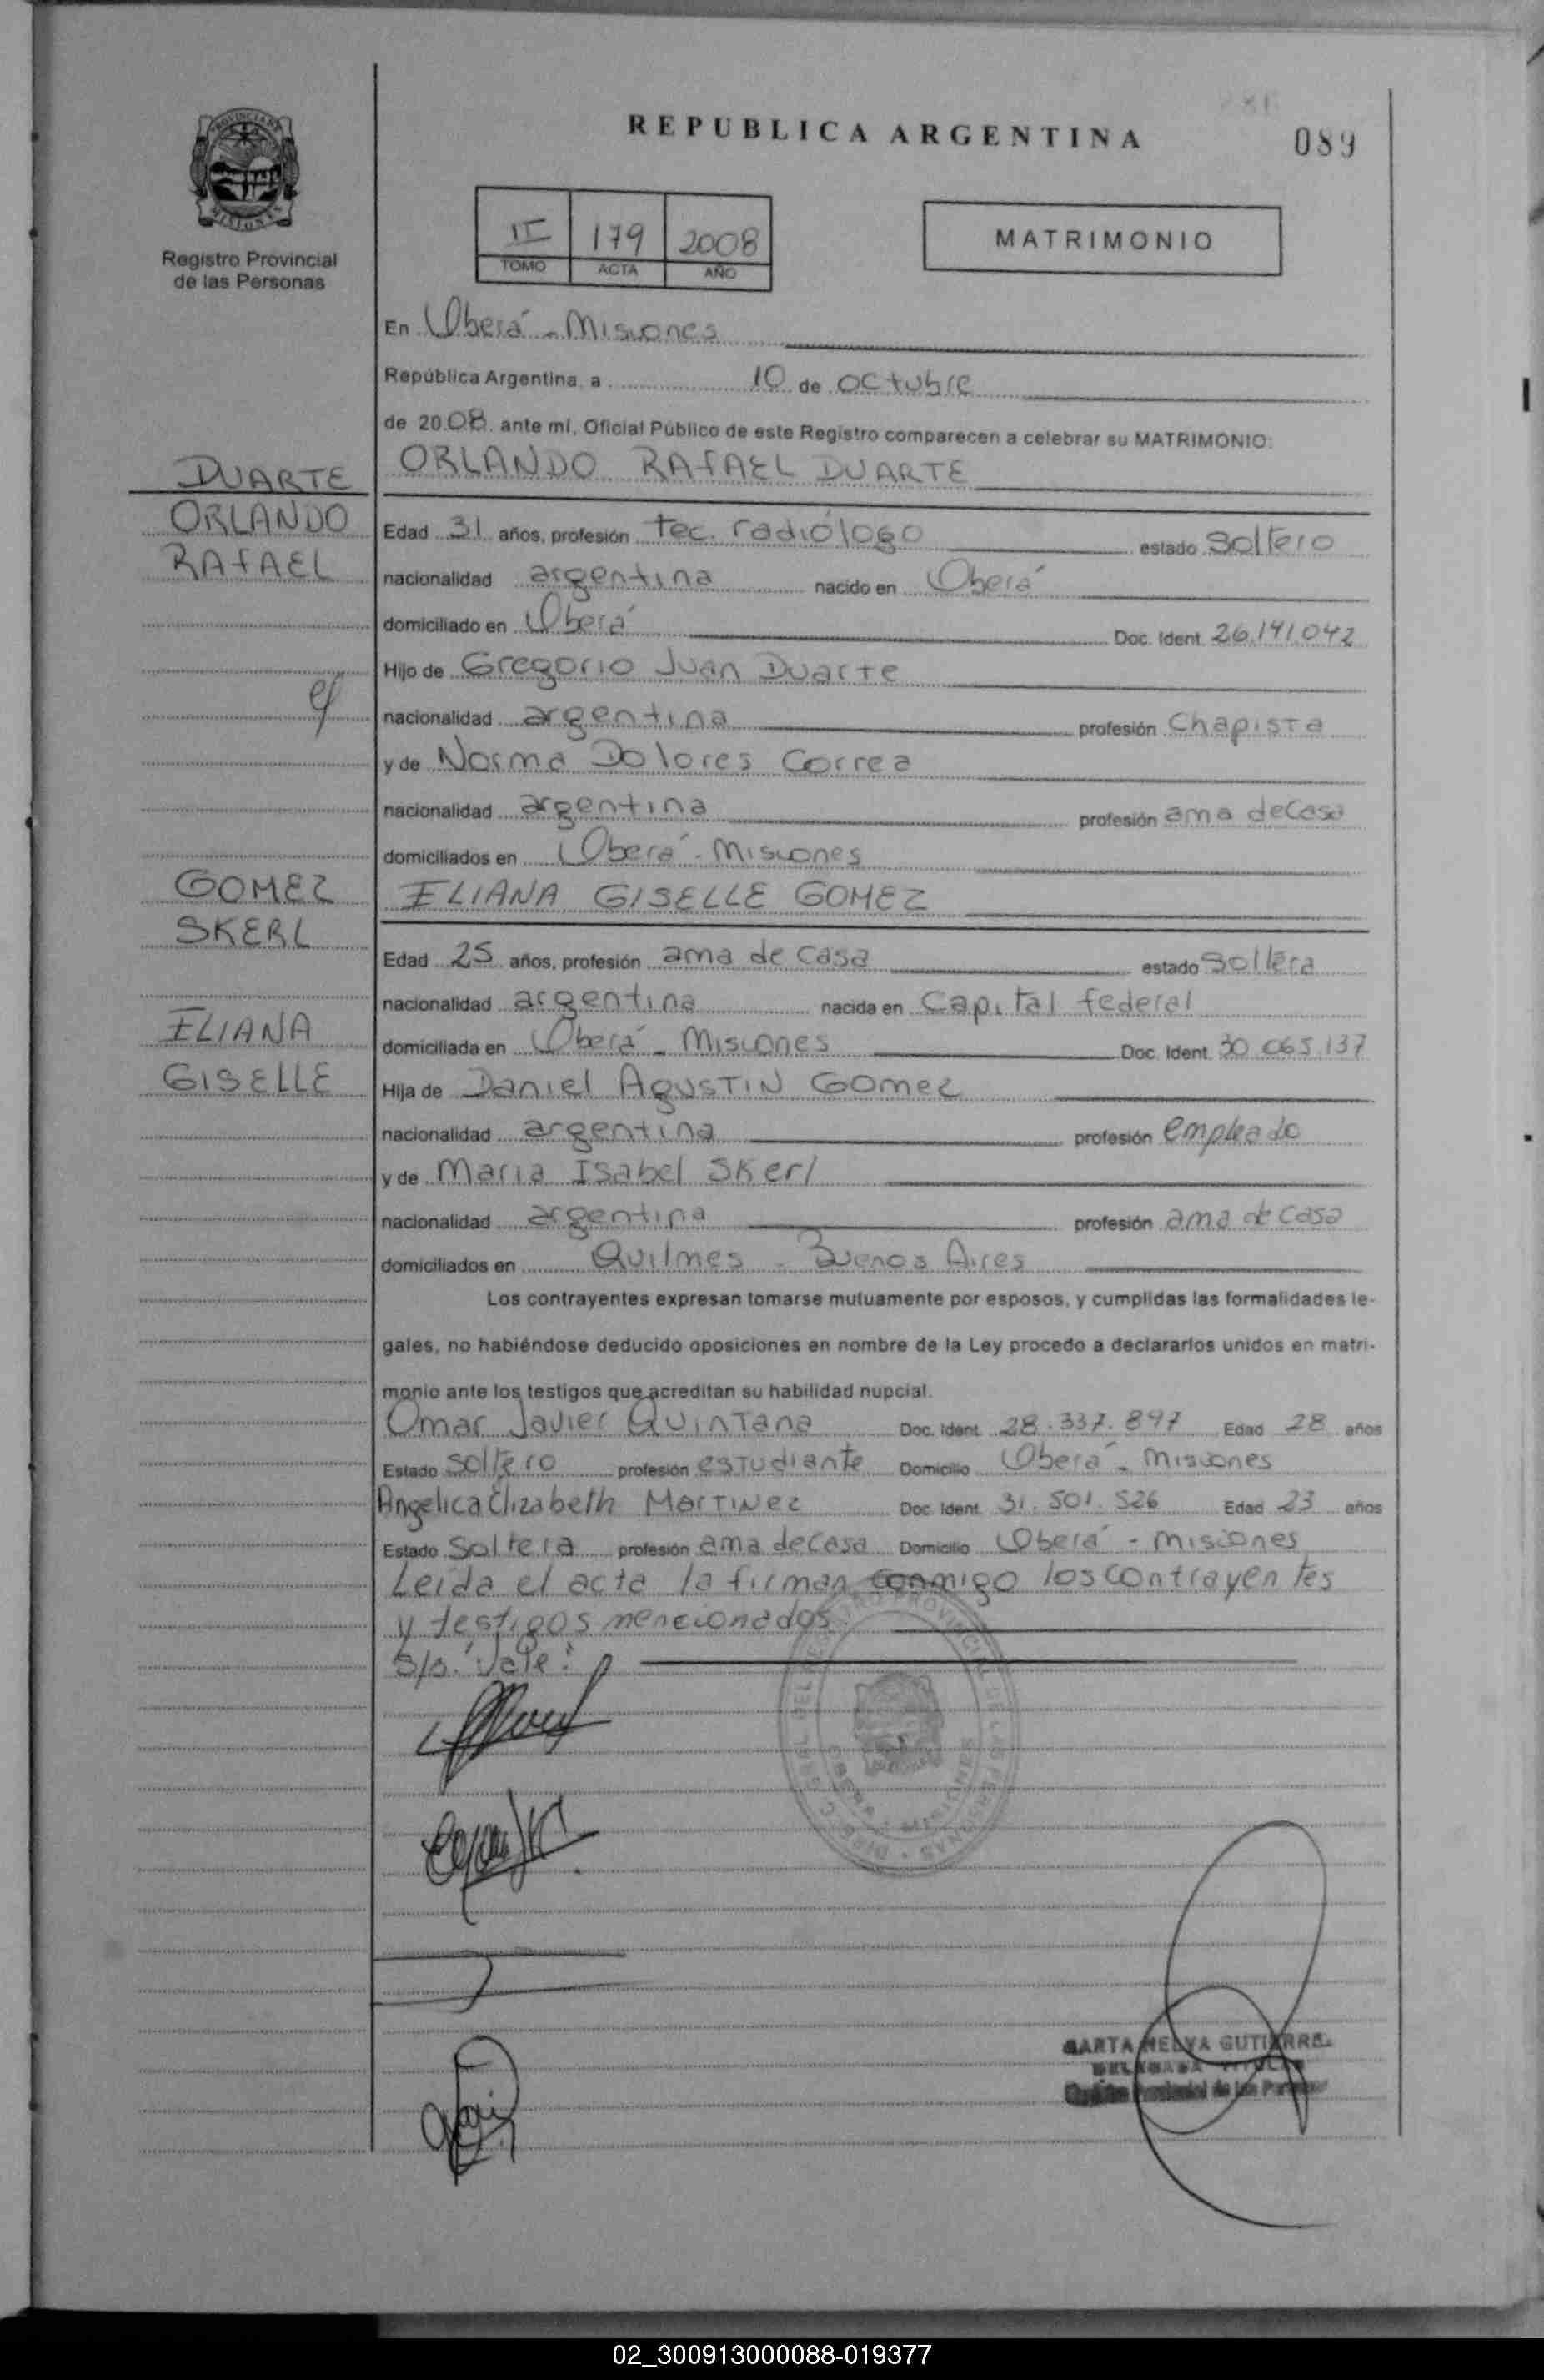 REPUBLICA ARGENTINA
089
PROVINCIA DE
MISIONES
Registro Provincial
de las Personas
II 179 2008
TOMO ACTA AÑO
MATRIMONIO
En Oberá - Misiones
República Argentina, a 10 de octubre
de 2008 ante mí, Oficial Público de este Registro comparecen a celebrar su MATRIMONIO:
DUARTE
ORLANDO
RAFAEL
ORLANDO RAFAEL DUARTE
Edad 31 años, profesión Tec. radiólogo estado Soltero
nacionalidad argentina nacido en Oberá
domiciliado en Oberá Doc. Ident. 26.141.042
Hijo de Gregorio Juan Duarte
nacionalidad argentina profesión Chapista
y de Norma Dolores Correa
nacionalidad argentina profesión ama de Casa
domiciliados en Oberá - Misiones
GOMEZ
SKERL
ELIANA
GISELLE
ELIANA GISELLE GOMEZ
Edad 25 años, profesión ama de casa estado Soltera
nacionalidad argentina nacida en Capital federal
domiciliada en Oberá - Misiones Doc. Ident. 30 065 137
Hija de Daniel AgusTIN Gomez
nacionalidad argentina profesión empleado
y de Maria Isabel Skerl
nacionalidad argentina profesión ama de Casa
domiciliados en Quilmes - Buenos Aires
Los contrayentes expresan tomarse mutuamente por esposos, y cumplidas las formalidades le-
gales, no habiéndose deducido oposiciones en nombre de la Ley procedo a declararlos unidos en matri-
monio ante los testigos que acreditan su habilidad nupcial.
Omar Javier Quintana Doc. Ident. 28.337.897 Edad 28 años
Estado Soltero profesión esTudiante Domicilio Oberá - Misiones
Angelica Elizabeth Martinez Doc. Ident. 31.501.526 Edad 23 años
Estado Soltera profesión ama de Casa Domicilio Oberá - Misiones
Leída el acta la firman conmigo los contrayentes
y testigos mencionados
s/b. Vale:
NELVA
02_300913000088-019377